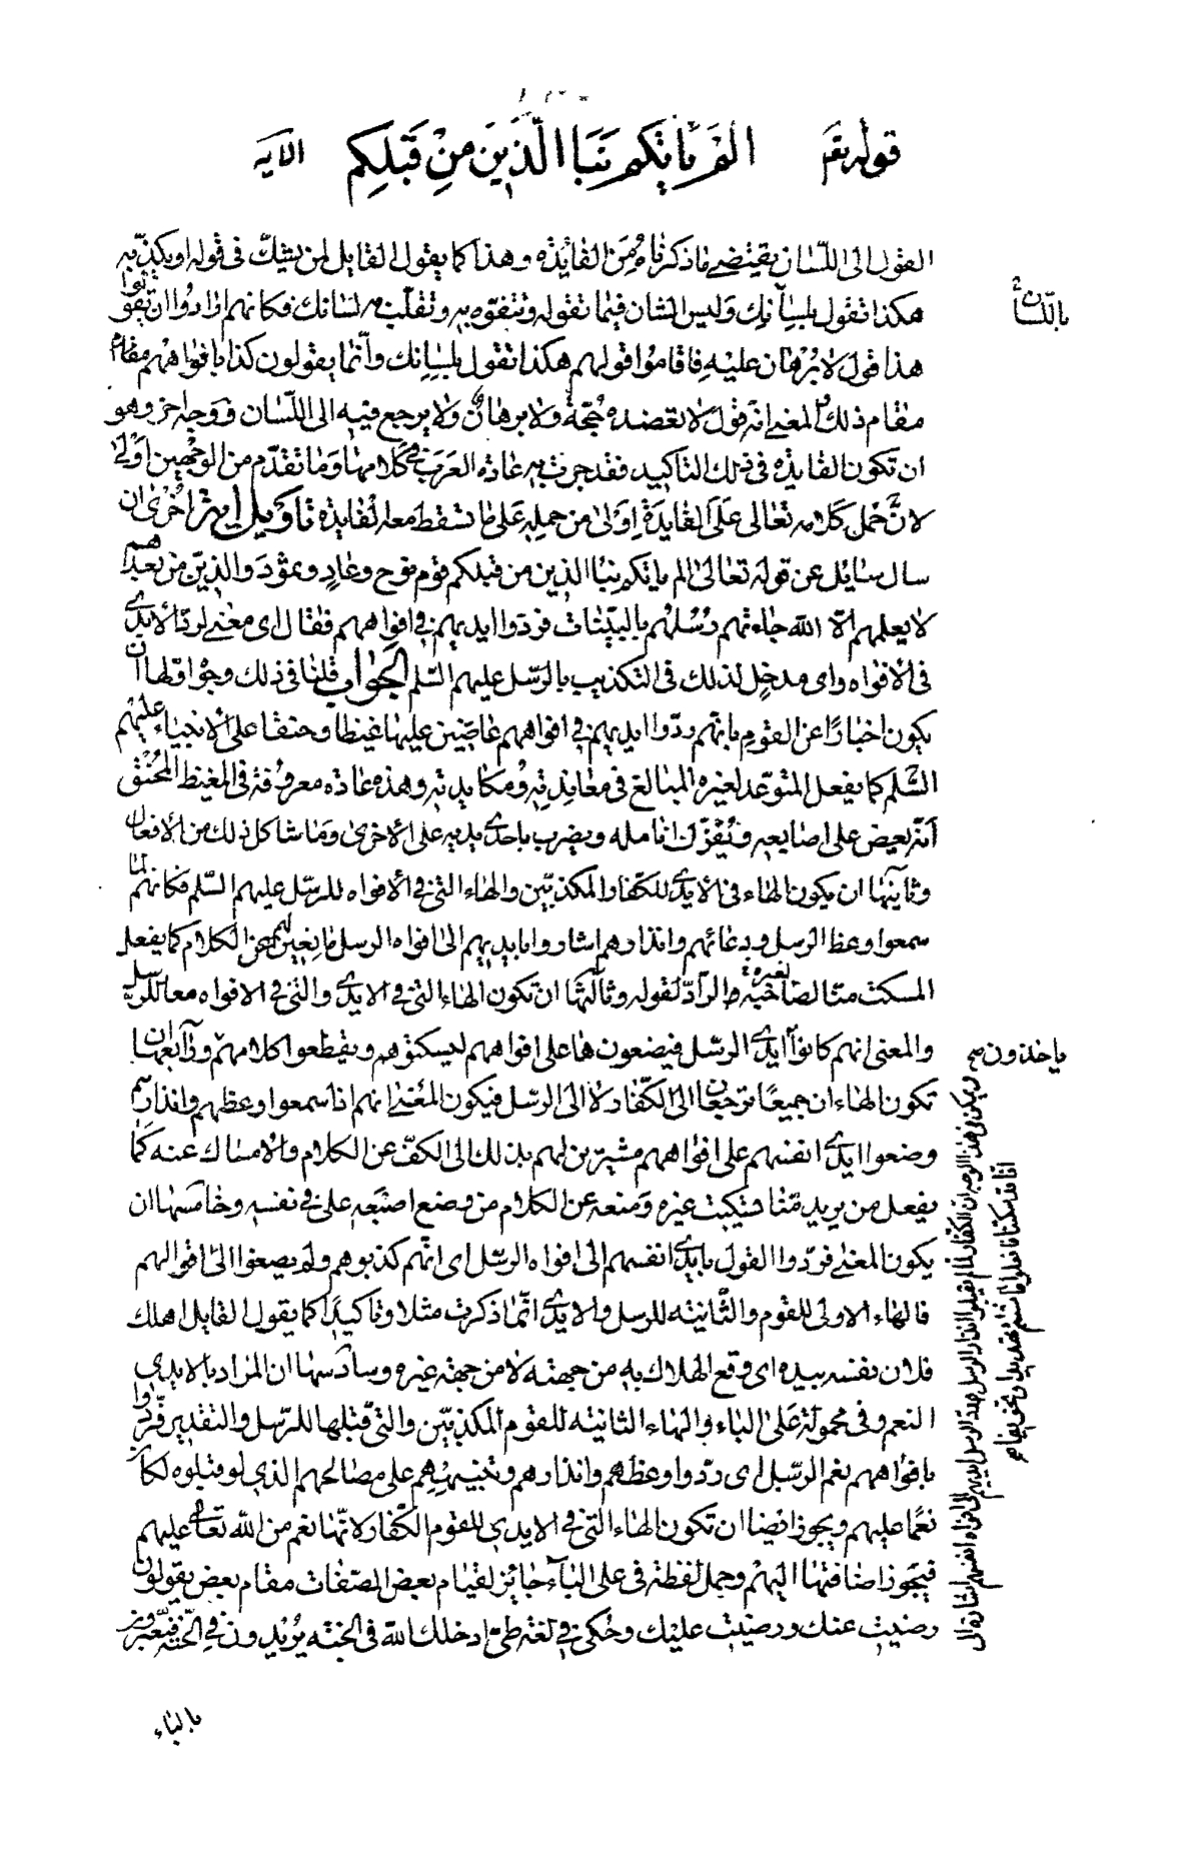 قوله تعم الم ياتكم نبا الذين من قبلكم الايه
القول الى اللسان يقتضى ما ذكرناه من الفايده وهذا كما يقول القايل لمن يشك فى قوله او يكذب به
هكذا تقول بلسانك وليس الشان فيما تقوله وتتفوه به وتقلب به لسانك فكانهم ارادوا ان تقولوا
باللسان
هذا قول لا برهان عليه فاقاموا قولهم هكذا تقول بلسانك وانما يقولون كذا بافواههم مقام
مقام ذلك والمعنى انه قول لا تعضده حجة ولا برهان ولا يرجع فيه الى اللسان ووجه اخر وهو
ان تكون الفايده فى ذلك التاكيد فقد جرت به عادة العرب فى كلامها وما تقدم من الوجهين اولى
لان حمل كلامه تعالى على الفايدة اولى من حمله على ما تسقط معه الفايدة تاويل اية اخرى ان
سال سايل عن قوله تعالى الم ياتكم نبا الذين من قبلكم قوم نوح وعاد وثمود والذين من بعدهم
لا يعلمهم الا الله جاءتهم رسلهم بالبينات فردوا ايديهم فى افواههم فقال اى معنى لرد الايدى
فى الافواه واى مدخل لذلك فى التكذيب بالرسل عليهم السلم الجواب قلنا فى ذلك وجوه اولها ان
يكون اخبارا عن القوم بانهم ردوا ايديهم فى افواههم عاضين عليها غيظا وحنقا على الانبياء عليهم
السلم كما يفعل المتوعد لغيره المبالغ فى معاندته ومكايدته وهذه عادة معروفة فى المغيظ المحنق
انه يعض على اصابعه ويفرك انامله ويضرب باحدى يديه على الاخرى وما شاكل ذلك من الافعال
وثانيها ان يكون الهاء فى الايدى للكفار المكذبين والهاء التى فى الافواه للرسل عليهم السلم فكانهم لما
سمعوا وعظ الرسل ودعائهم وانذارهم اشاروا بايديهم الى افواه الرسل مانعين لهم عن الكلام كما يفعل
المسكت منا لصاحبه الراد لقوله وثالثها ان تكون الهاء التى فى الايدى والتى فى الافواه معا للرسل
والمعنى انهم كانوا ياخذون ايدى الرسل فيضعونها على افواههم ليسكتوهم ويقطعوا كلامهم ورابعها ان
تكون الهاءان جميعا ترجعان الى الكفار لا الى الرسل فيكون المعنى انهم اذا سمعوا وعظهم وانذارهم
وضعوا ايدى انفسهم على افواههم مشيرين لهم بذلك الى الكف عن الكلام والامساك عنه كما
يفعل من يريد منا تسكيت غيره ومنعه عن الكلام من وضع اصبعه على فى نفسه وخامسها ان
يكون المعنى فردوا القول بايدى انفسهم الى افواه الرسل اى انهم كذبوهم ولم يصغوا الى اقوالهم
فالهاء الاولى للقوم والثانيه للرسل والايدى انما ذكرت مثلا وتاكيدا كما يقول القايل اهلك
فلان نفسه بيده اى وقع الهلاك به من جهته لا من جهة غيره وسادسها ان المراد بالايدى
النعم وفى محمولة على الباء والهاء الثانيه للقوم المكذبين والتى قبلها للرسل والتقدير فردوا
بافواههم نعم الرسل اى ردوا وعظهم وانذارهم وتنبيههم على مصالحهم الذى لو قبلوه لكان
نعما عليهم ويجوز ايضا ان تكون الهاء التى فى الايدى للقوم الكفار لانها نعم من الله تعالى عليهم
فيجوز اضافتها اليهم وحمل لفظة فى على الباء جائز لقيام بعض الصفات مقام بعض يقولون
رضيت عنك ورضيت عليك وحكى فى لغة طى ادخلك الله فى الجنه يريدون فى الجنه فيعبرون
ويمكن فى هذا الوجه ان الكفار لما لم يقبلوا انذار الرسل الرسل ايديهم الى افواه انفسهم اشارة الى
انا قد سكتنا فافعلوا ما شئتم تهديدا وتخويفا
بالباء